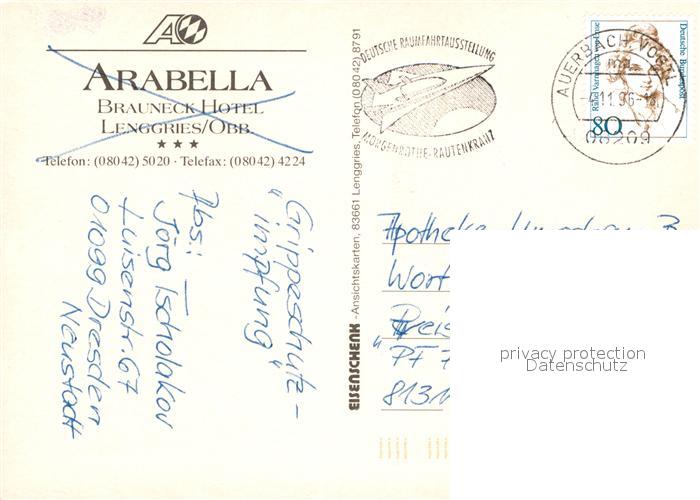 ARABELLA
BRAUNECK HOTEL
LENGGRIES/OBB.
★★★
Telefon: (08042) 5020 · Telefax: (08042) 4224
„Grippeschutz-
impfung"
Abs:
Jörg Tscholakov
Luisenstr. 67
01099 Dresden
Neustadt
EISENSCHENK -Ansichtskarten, 83661 Lenggries, Telefon (08042) 8791
DEUTSCHE RAUMFAHRTAUSSTELLUNG
MORGENRÖTHE-RAUTENKRANZ
AUERBACH, VOGTL
-4.11.96-18
08209
Deutsche Bundespost
Rahel Varnhagen von Ense
80
Apotheke
Wort
"Preis
PF 7
8131
privacy protection
Datenschutz